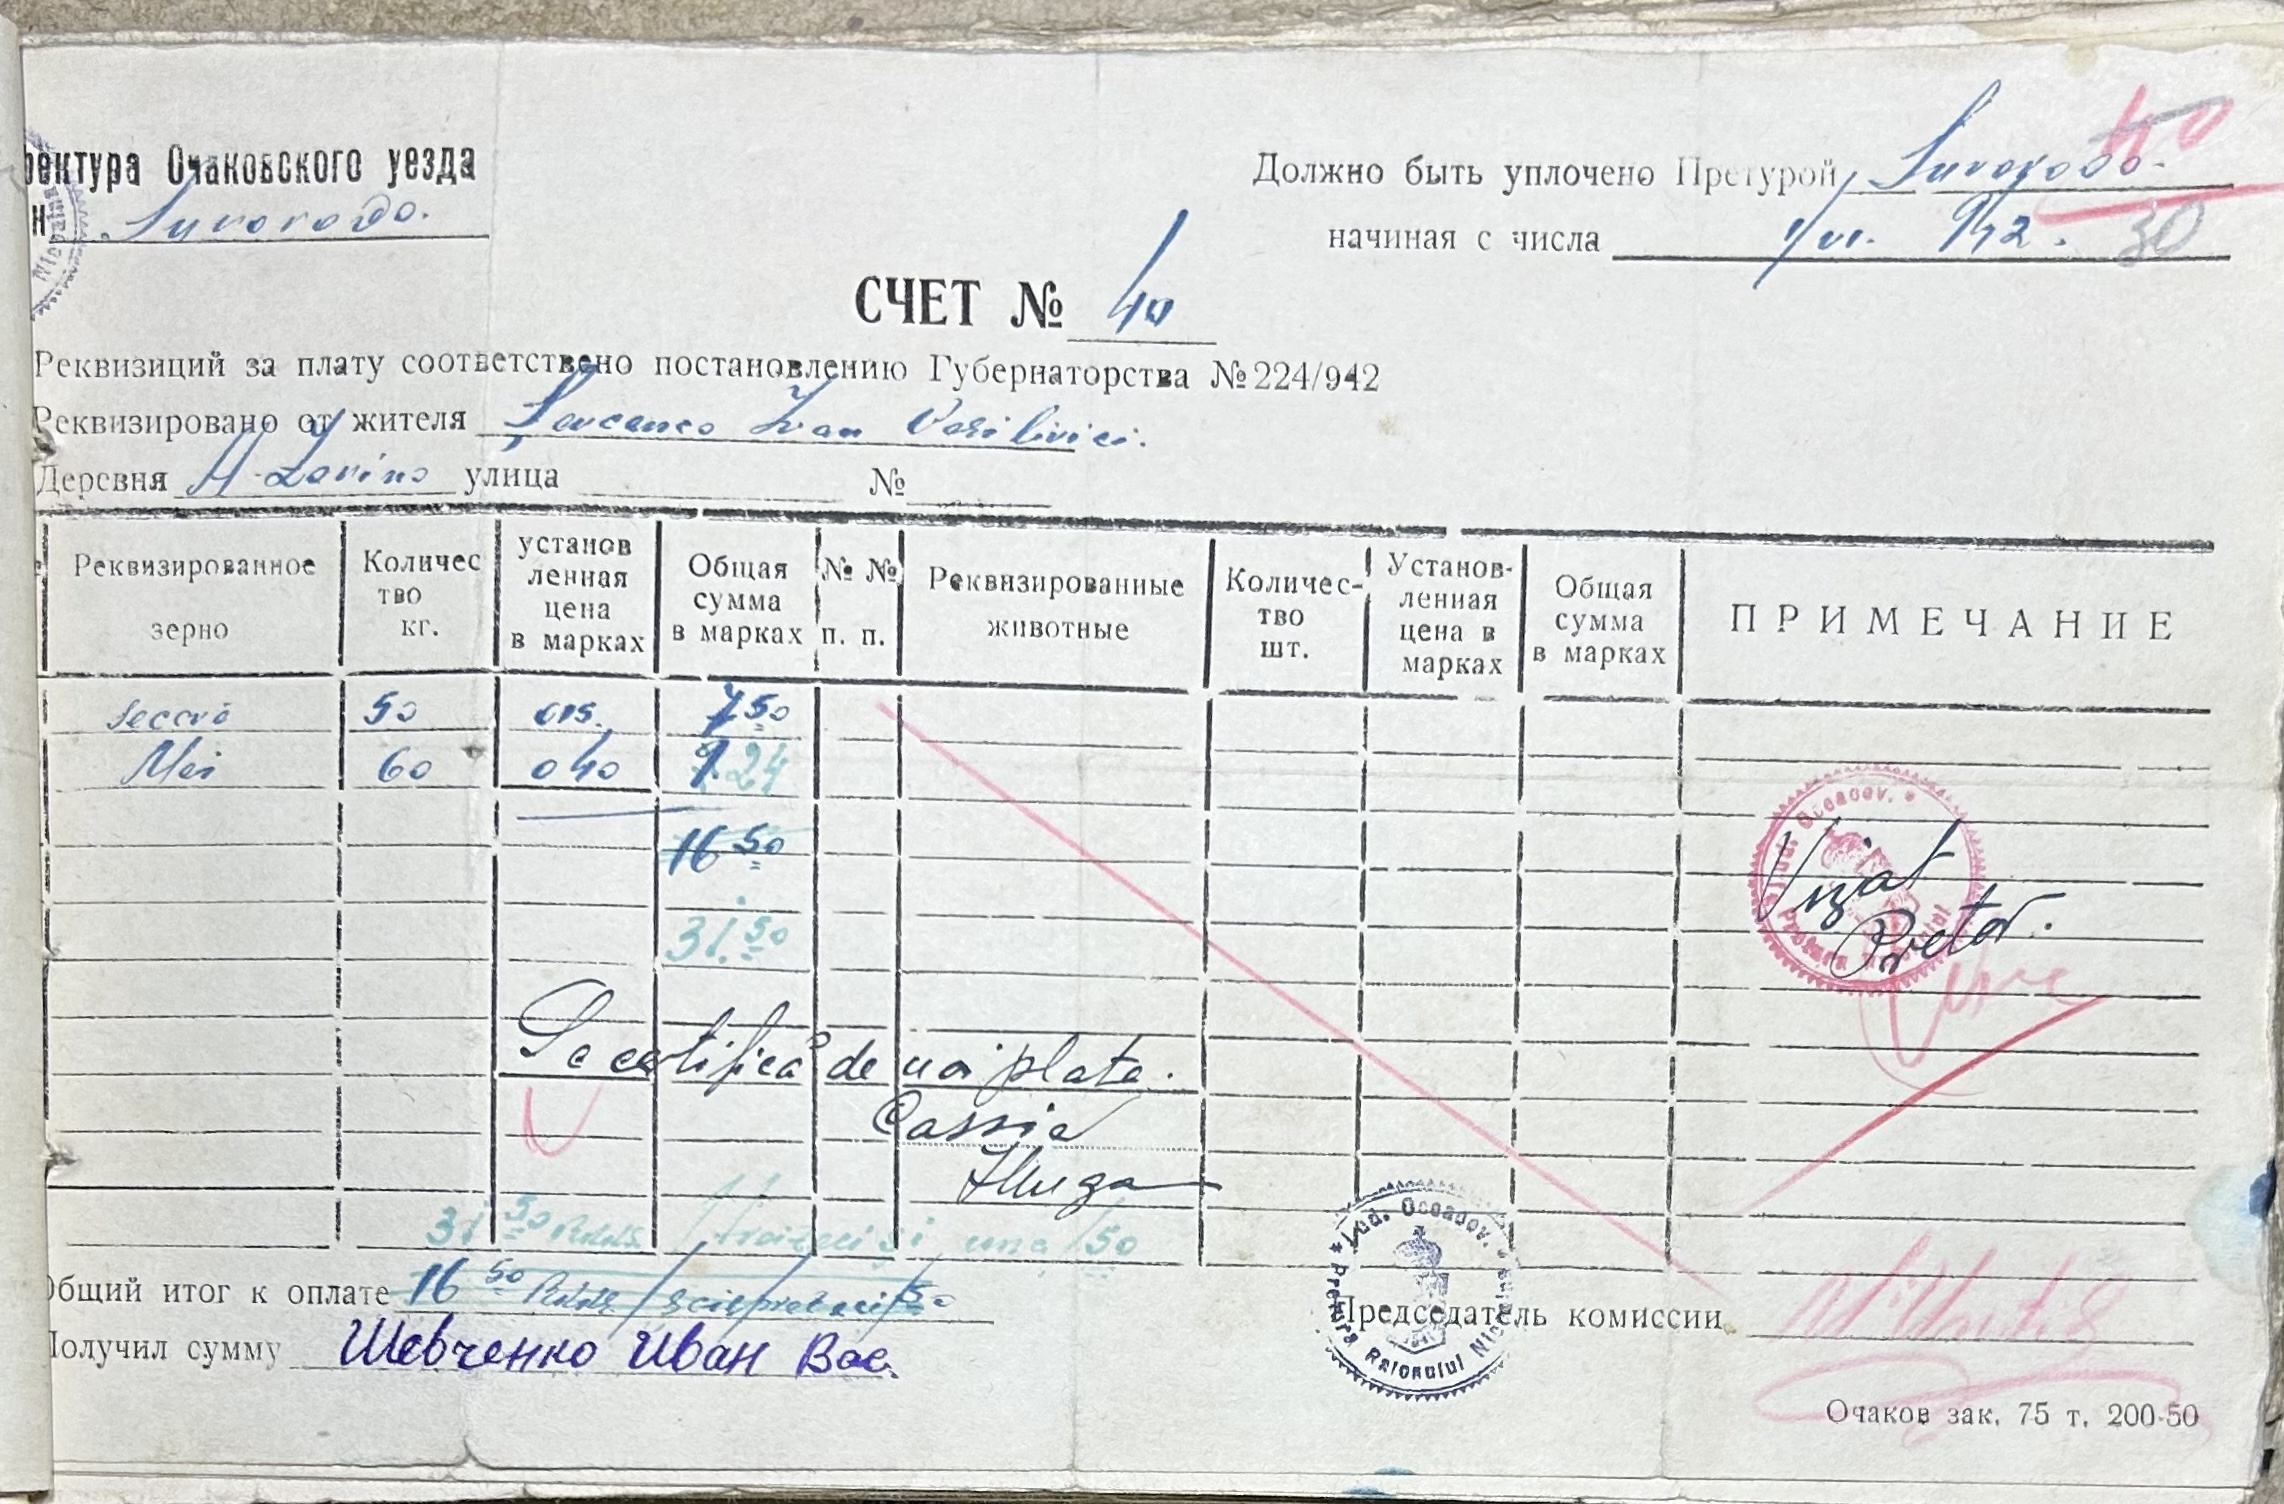 ректура Очаковского уезда
н Suvorovo.
Должно быть уплочено Претурой Suvorovo. 40
начиная с числа 1/VI. 942. 30
СЧЕТ № 40
Реквизиций за плату соответствено постановлению Губернаторства № 224/942
Реквизировано от жителя Şevcenco Ivan Vasilivici.
Деревня улица №
Реквизированное зерно
Количес тво кг.
установ ленная цена в марках
Общая сумма в марках
№ № п. п.
Реквизированные животные
Количес- тво шт.
Установ- ленная цена в марках
Общая сумма в марках
ПРИМЕЧАНИЕ
Secară 50 015. 7 50
Mei 60 040 24
16 50
31.50
Jud. Oceacov.
Vizat
Pretor.
Se certifică de noi plata.
31 50 RKKS /treizeci și una/50
Общий итог к оплате 16 50 RKKS
Jud. Oceacov. * Pretura Raionului
Председатель комиссии
Получил сумму Шевченко Иван Вас.
Очаков зак. 75 т. 200-50